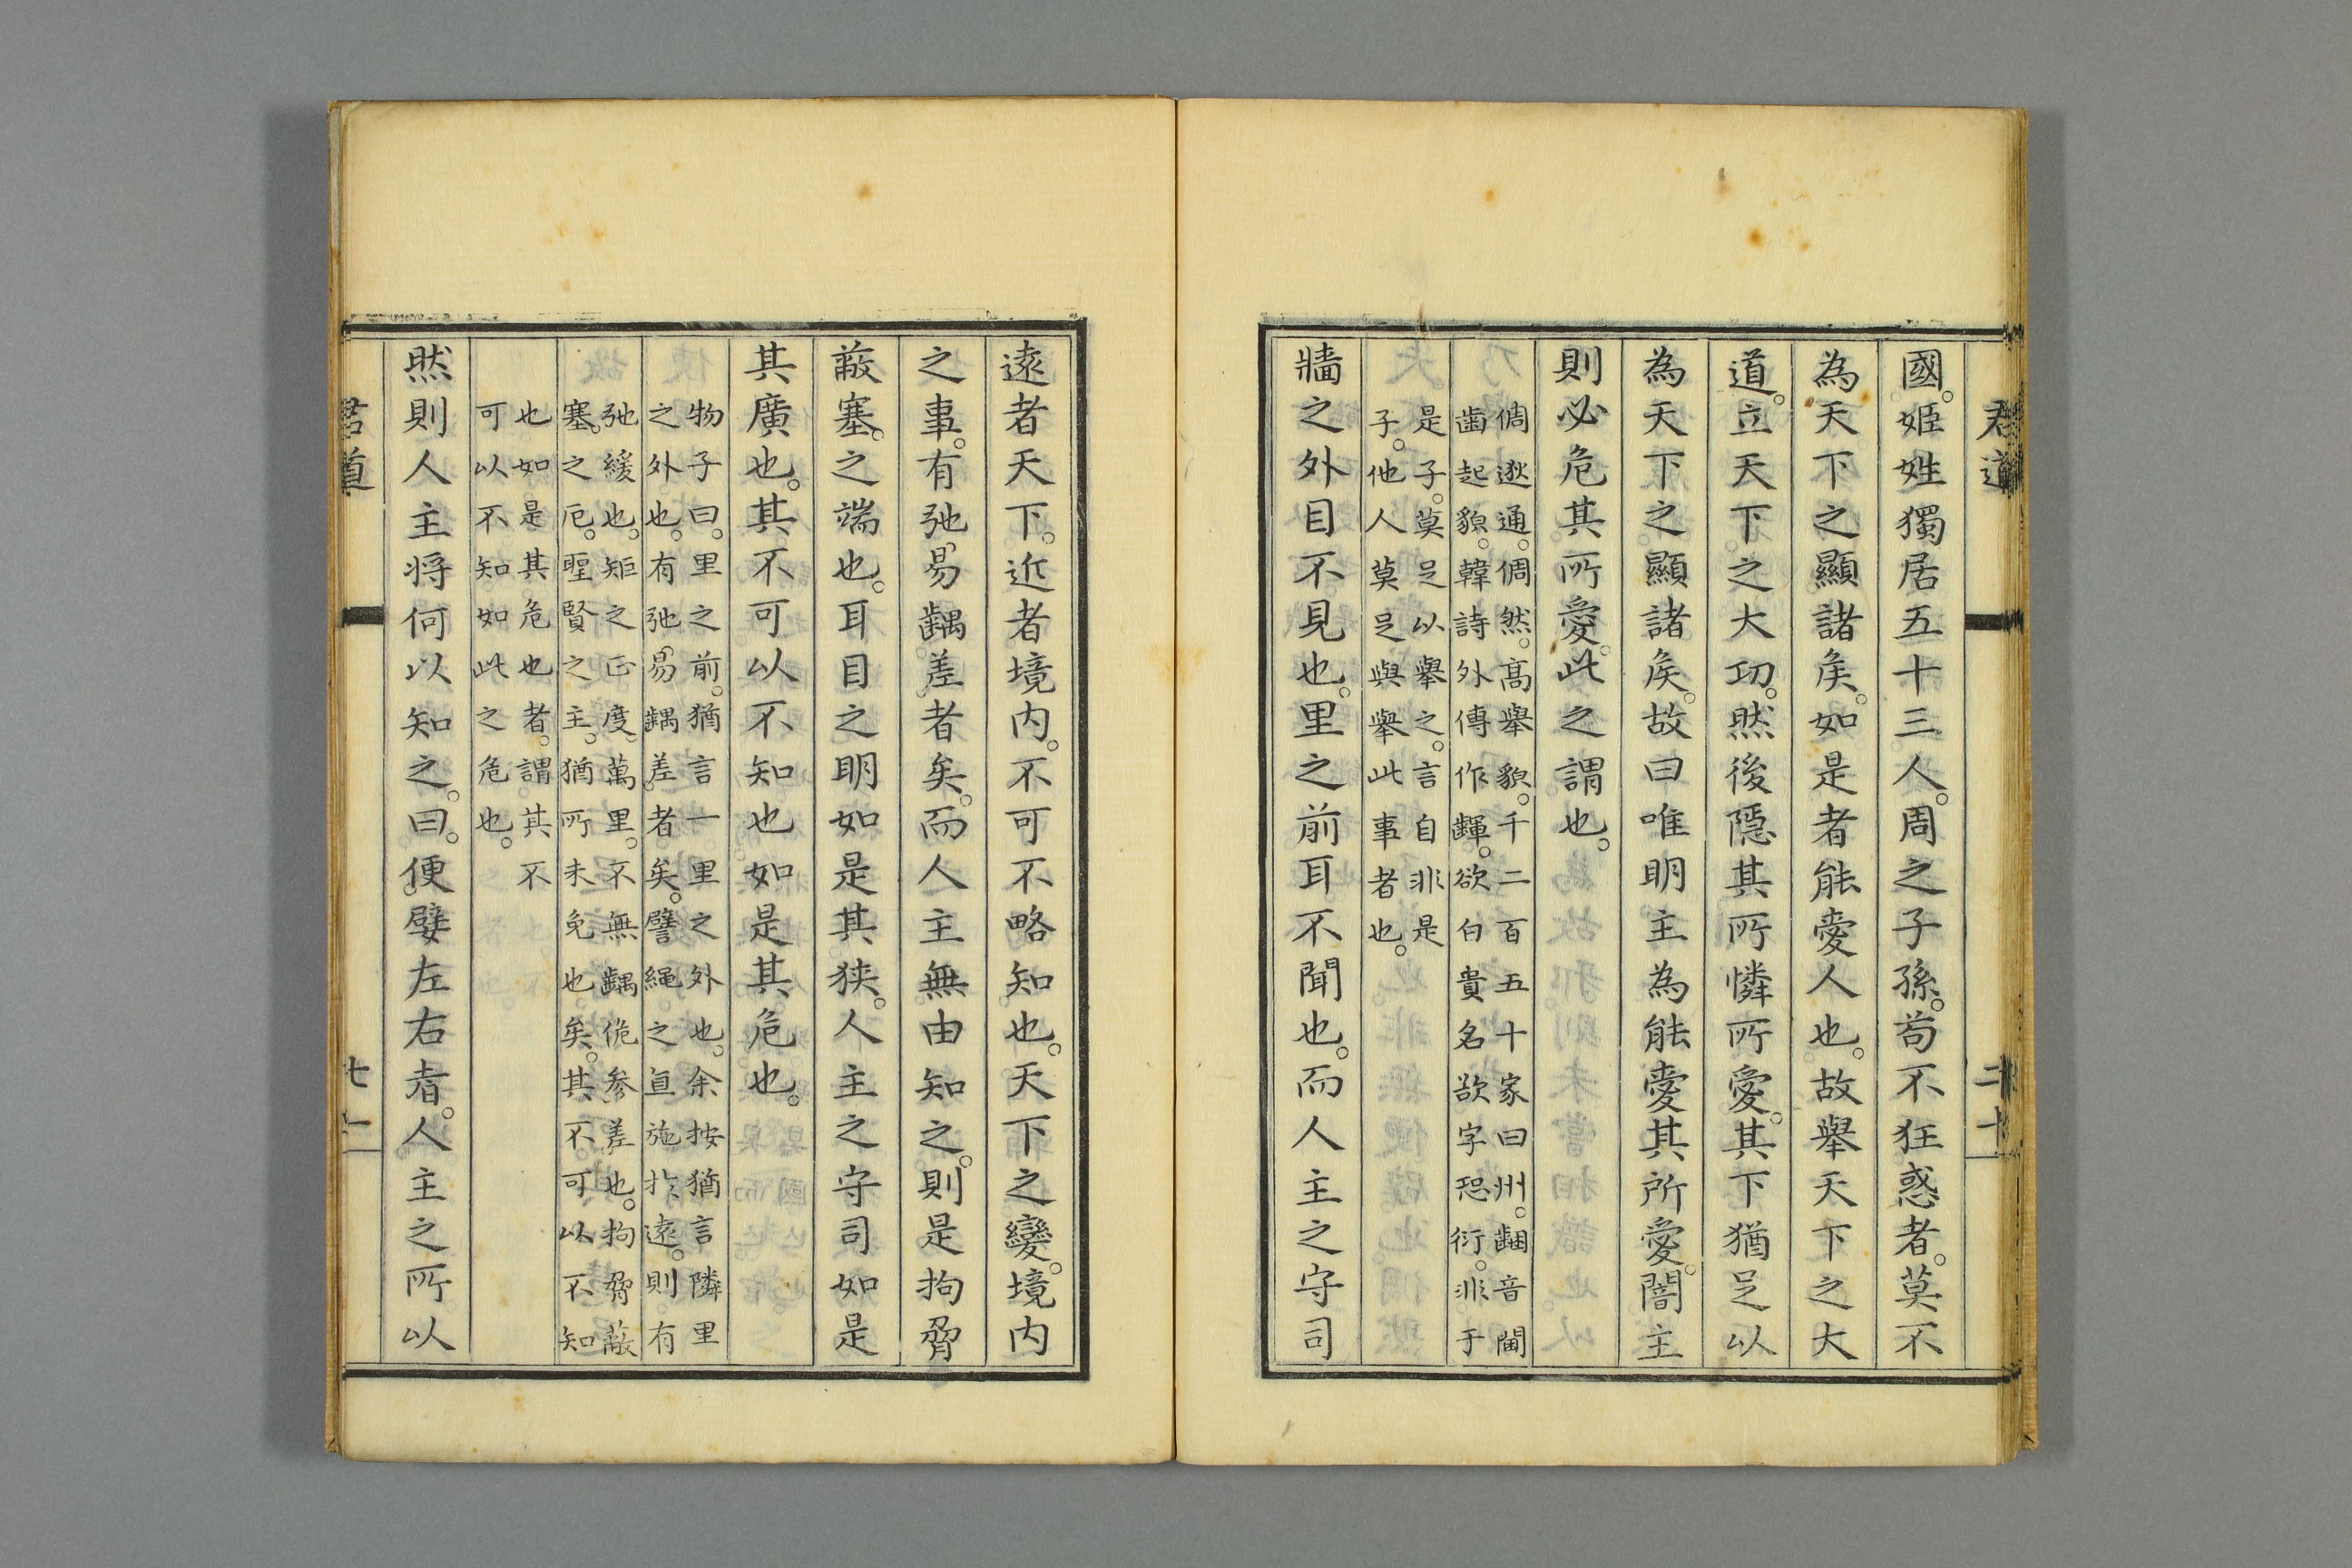 君道
二十
國。姬姓獨居五十三人。周之子孫。苟不狂惑者。莫不
為天下之顯諸矦。如是者能愛人也。故舉天下之大
道。立天下之大功。然後隱其所憐所愛。其下猶足以
為天下之顯諸矦。故曰唯明主為能愛其所愛。闇主
則必危其所愛。此之謂也。
倜遬通。倜然。高舉貌。千二百五十家曰州。齫音閫
齒起貌。韓詩外傳作齳。欲白貴名欲字恐衍。非于
是子。莫足以舉之。言自非是
子。他人莫足與舉此事者也。
牆之外目不見也。里之前耳不聞也。而人主之守司
遠者天下。近者境内。不可不略知也。天下之變。境内
之事。有弛易齵差者矣。而人主無由知之。則是拘脅
蔽塞之端也。耳目之明如是其狹。人主之守司如是
其廣也。其不可以不知也如是其危也。
物子曰。里之前。猶言一里之外也。余按猶言隣里
之外也。有弛易齵差者矣。譬繩之直施於遠。則有
弛緩也。矩之正度萬里。不無齵佹參差也。拘脅蔽
塞。之厄。聖賢之主。猶所未免也矣。其不可以不知
也如是其危也者。謂其不
可以不知如此之危也。
然則人主將何以知之。曰。便嬖左右者。人主之所以
君道